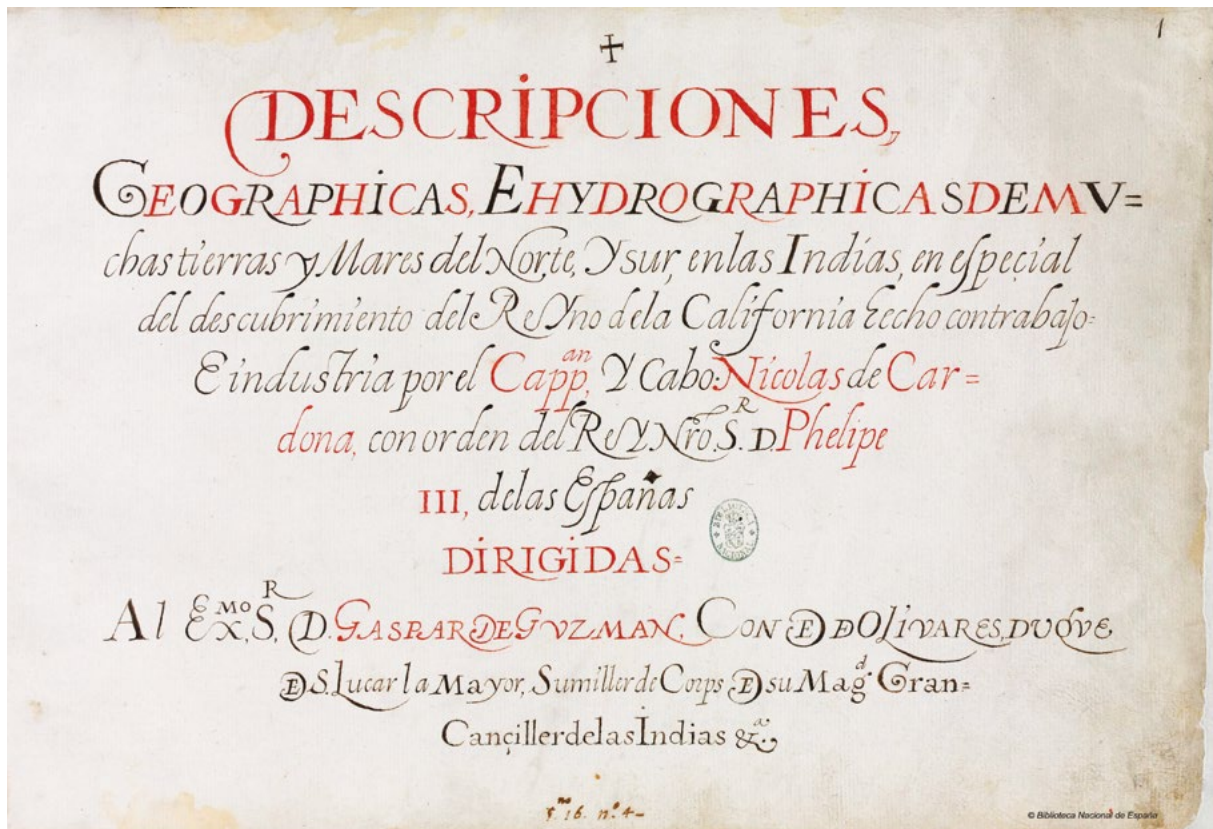 1
DESCRIPCIONES,
GEOGRAPHICAS, E HYDROGRAPHICAS DE MV=
chas tierras y Mares del Norte, Y sur, en las Indias, en especial
del descubrimiento del ReYno dela California hecho contrabajo=
E industria por el Capp.an Y Cabo: Nicolas de Car=
dona, con orden del ReY Nro. S.R D. Phelipe
III, delas Españas
DIRIGIDAS=
Al Ex.MO S.R D. GASPAR DE GVZMAN, CONDE DE OLIVARES, DVQVE
DE S. Lucar la Mayor, Sumiller de Corps DE su Mag.d Gran=
Cançiller delas Indias &.a
BIBLIOTECA NACIONAL
16. n.º 4-
© Biblioteca Nacional de España